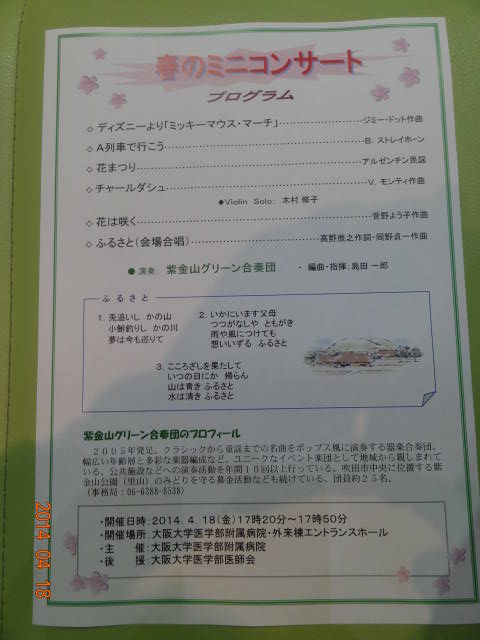 春のミニコンサート
プログラム
◇ ディズニーより「ミッキーマウス・マーチ」……ジミー・ドット作曲
◇ A列車で行こう……B. ストレイホーン
◇ 花まつり……アルゼンチン民謡
◇ チャールダシュ……V. モンティ作曲
◆Violin Solo: 木村 修子
◇ 花は咲く……菅野よう子作曲
◇ ふるさと(会場合唱)……高野辰之作詞・岡野貞一作曲
● 演奏: 紫金山グリーン合奏団 ・ 編曲・指揮: 島田 一郎
ふるさと
1. 兎追いし かの山
小鮒釣りし かの川
夢は今も巡りて
2. いかにいます父母
つつがなしや ともがき
雨や風につけても
想いいずる ふるさと
3. こころざしを果たして
いつの日にか 帰らん
山は青き ふるさと
水は清き ふるさと
紫金山グリーン合奏団のプロフィール
2005年発足。クラシックから童謡までの名曲をポップス風に演奏する器楽合奏団。
幅広い年齢層と多彩な楽器編成など、ユニークなイベント楽団として地域から親しまれて
いる。公共施設などへの演奏活動を年間10回以上行っている。吹田市中央に位置する紫
金山公園(里山)のみどりを守る募金活動なども続けている。団員約25名。
(事務局:06-6388-8538)
・開催日時:2014. 4. 18(金)17時20分~17時50分
・開催場所:大阪大学医学部附属病院・外来棟エントランスホール
・主 催:大阪大学医学部附属病院
・後 援:大阪大学医学部医師会
2014 04 18